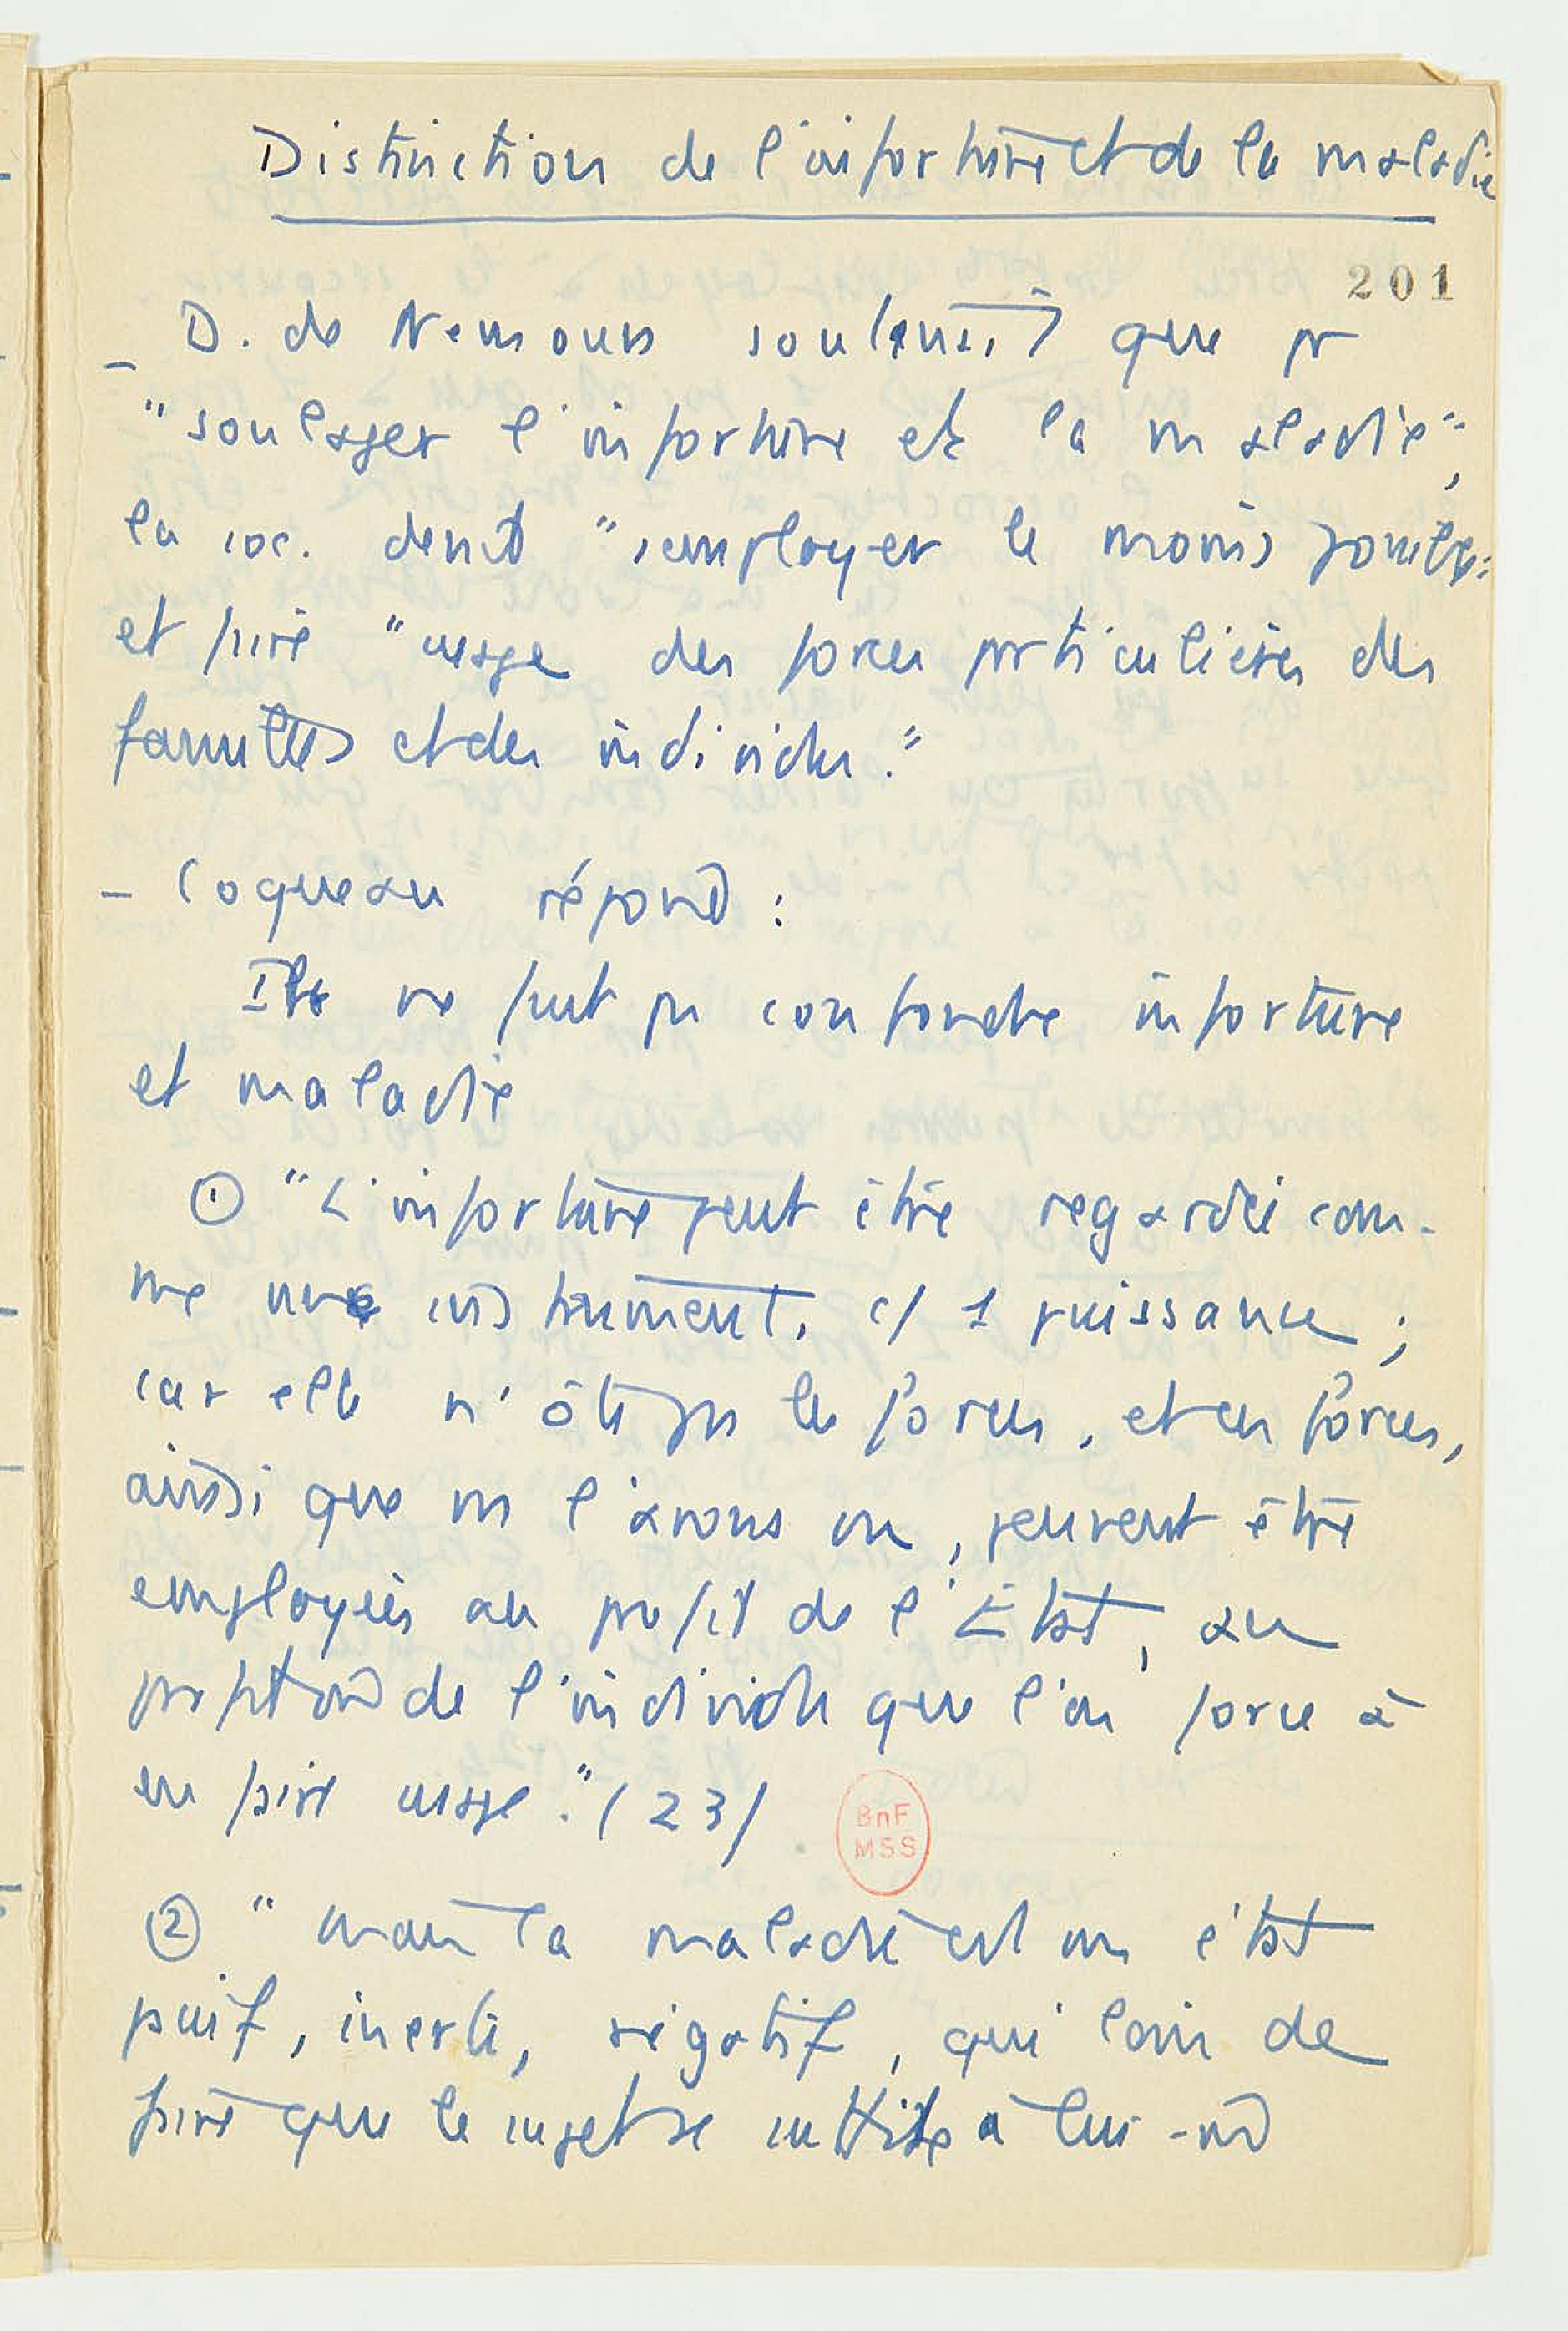 Distinction de l'infortune et de la maladie
201
_ D. de Nemours soutenait que pr
"soulager l'infortune et la maladie",
la soc. devait "employer le moins possible"
et faire "usage des forces particulières des
familles et des individus."
_ Coqueau répond :
Il ne faut pas confondre infortune
et maladie
① "L'infortune peut être regardée com-
me un instrument, c/ 1 puissance ;
car elle n'ôte pas les forces, et ces forces,
ainsi que ns l'avons vu, peuvent être
employées au profit de l'État, au
profit de l'individu que l'on force à
en faire usage." (23)
BnF
MSS
② "mais la maladie est un état
passif, inerte, négatif, qui loin de
faire que le sujet se suffise à lui-m̂